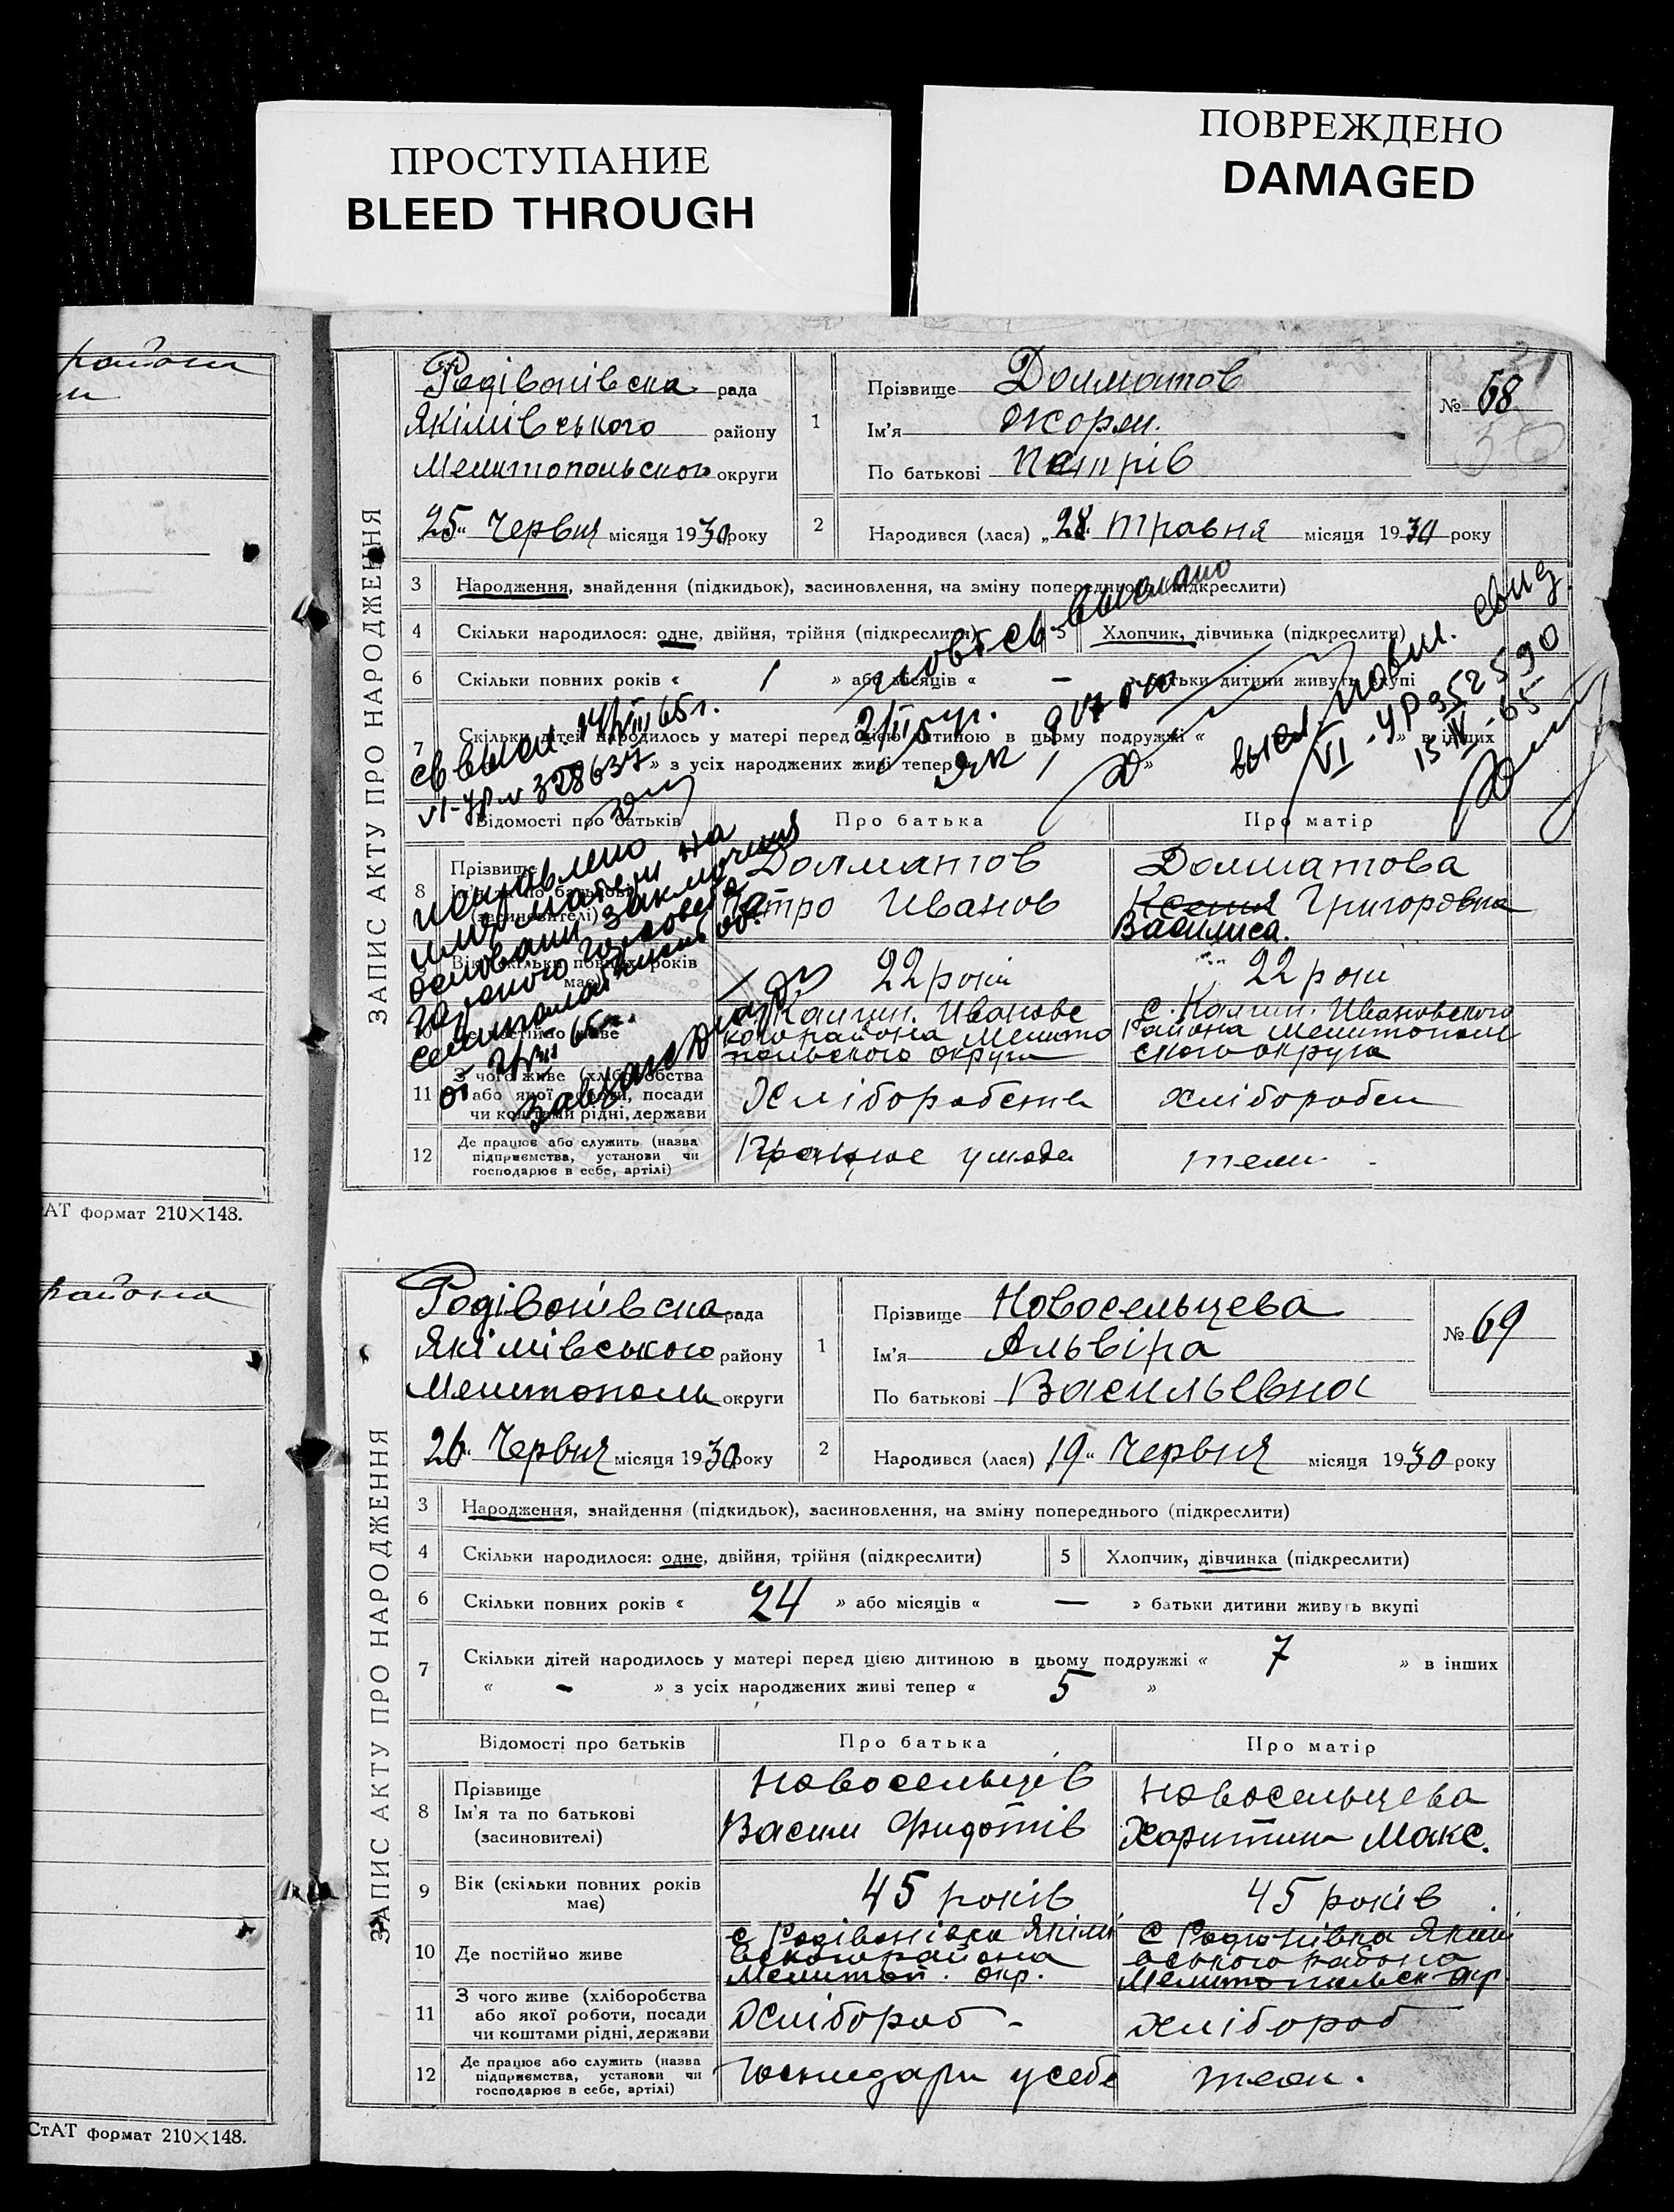 ПРОСТУПАНИЕ
BLEED THROUGH
ПОВРЕЖДЕНО
DAMAGED
району
АТ формат 210×148.
района
СтАТ формат 210×148.
ЗАПИС АКТУ ПРО НАРОДЖЕННЯ
Родівонівска рада
Якімівського району
Мелитопольского округи
„25“ Червня місяця 1930 року
1 Прізвище Долматов
Ім'я Жорж.
По батькові Петрів
№ 68
2 Народився (лася) „28“ травня місяця 1930 року
3 Народження, знайдення (підкидьок), засиновлення, на зміну попереднього (підкреслити)
4 Скільки народилося: одне, двійня, трійня (підкреслити) 5 Хлопчик, дівчинка (підкреслити)
6 Скільки повних років « 1 » або місяців « — » батьки дитини живуть вкупі
7 Скільки дітей народилось у матері перед цією дитиною в цьому подружжі « » в інших
» з усіх народжених живі тепер »
св высл.
VI-УР № 328637
высл. повт. свид
VI-УР 352590
15-IV-65
Відомості про батьків Про батька Про матір
8 Прізвище
Долматов
Петро Иванов
Долматова
Ксения Григоровна
Василиса.
исправлено
имя матери на
основани заключения
22 рокі
22 роки
с. Калин. Ивановс
кого района Мелито
польского округа
с. Калин. Ивановского
района Мелитополь
ского округа
11 З чого живе (хліборобства
або якої роботи, посади
чи коштами рідні, держави
Хліборобства
хлібороб
12 Де працює або служить (назва
підприємства, установи чи
господарює в себе, артілі)
Працює
теж
ЗАПИС АКТУ ПРО НАРОДЖЕННЯ
Родівонівска рада
Якімівського району
Мелитополь округи
26“ Червня місяця 1930 року
1 Прізвище Новосельцева
Ім'я Альвіра
По батькові Васильевна
№ 69
2 Народився (лася) 19“ Червня місяця 1930 року
3 Народження, знайдення (підкидьок), засиновлення, на зміну попереднього (підкреслити)
4 Скільки народилося: одне, двійня, трійня (підкреслити) 5 Хлопчик, дівчинка (підкреслити)
6 Скільки повних років « 24 » або місяців « — » батьки дитини живуть вкупі
7 Скільки дітей народилось у матері перед цією дитиною в цьому подружжі « 7 » в інших
« - » з усіх народжених живі тепер « 5 »
Відомості про батьків Про батька Про матір
8 Прізвище
Ім'я та по батькові
(засиновителі)
Новосельцев
Васили Фидотів
Новосельцева
Харитина Макс.
9 Вік (скільки повних років
має)
45 років
45 років
10 Де постійно живе
с Родівонівка Якімі
вского района
Мелитоп. окр.
С Родівонівка Якімі
вського района
Мелитопольск окр
11 З чого живе (хліборобства
або якої роботи, посади
чи коштами рідні, держави
Хлібороб -
хлібороб
12 Де працює або служить (назва
підприємства, установи чи
господарює в себе, артілі)
Господари у себе
теж.